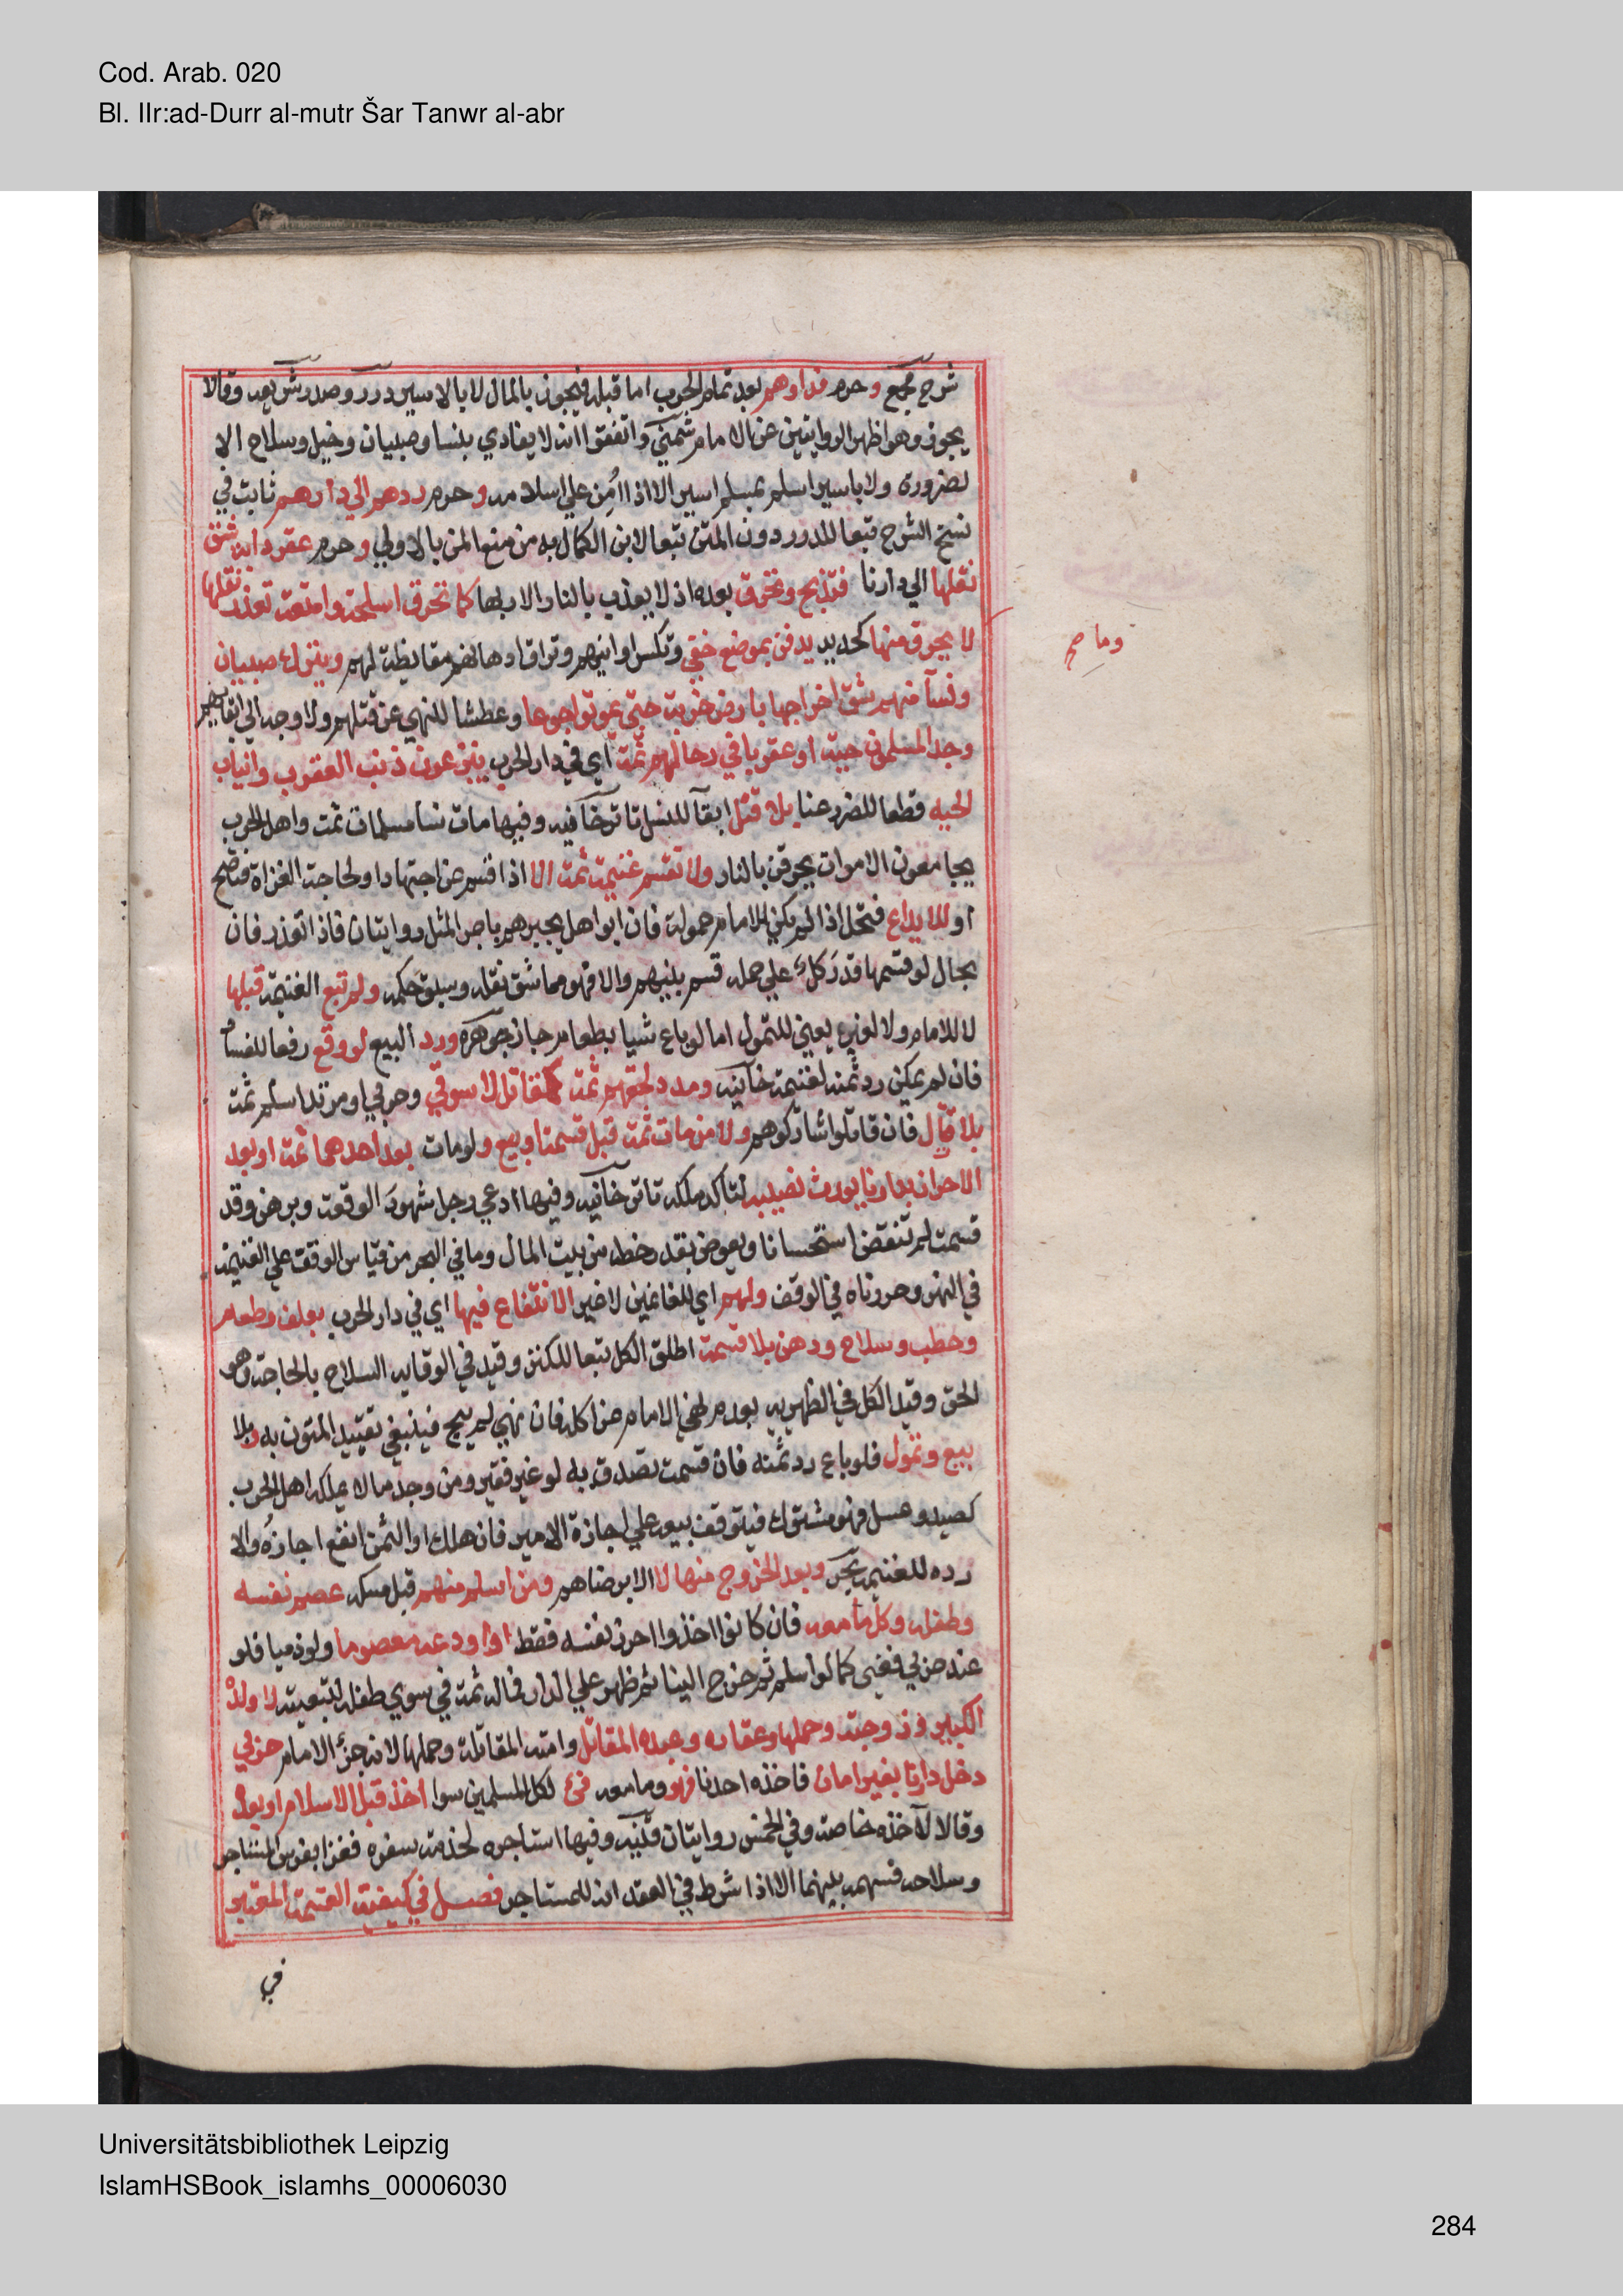 Cod. Arab. 020
Bl. IIr:ad-Durr al-mutr Šar Tanwr al-abr
شرح مجمع وحرم فداوهم بعد تمام الحرب اما قبله فيجوز بالمال لا بالاسير درر وصدر شريعه وقالا
يجوز وهو اظهر الروايتين عن الامام شمني واتفقوا انه لا يفادي بنسا وصبيان وخيل وسلاح الا
لضرورة ولا باسير اسلم بمسلم اسير الا اذا امُن علي اسلامه وحرم ردهم الي دارهم ثابت في
نسخ الشرح تبعا للدرر دون المتن تبعا لابن الكمال به من منع المن بالاولي وحرم عقر دابه شق
نقلها الي دارنا فتذبح وتحرق بعده اذ لا يعذب بالنار الا ربها كما تحرق اسلحة وامتعة تعذر نقلها
لا يحرق منها كحديد يدفن بموضع خفي وتكسر اوانيهم وتراق ادهانهم مقايظة لهم ويترك صبيان
وما صح
ونسآ منهم شق اخراجها بارض خربة حتي يموتوا جوعا وعطشا للنهي عن قتلهم ولا وجه الي ابقايهم
وجد المسلمون حية او عقربا في رحالهم ثمة اي في دار الحرب ينزعون ذنب العقرب وانياب
الحيه قطعا للضرر عنا بلا قتل ابقآ للنسل تاترخانيه وفيها مات نسا مسلمات ثمت واهل الحرب
يجامعون الاموات يحرقن بالنار ولا تقسم غنيمة ثمة الا اذا قسم عن اجتهاد او لحاجة الغزاة فتصح
او للايداع فتحل اذا لم يكن للامام حمولة فان ابوا هل يجبرهم باجر المثل روايتان فاذا تعذر فان
بحال لو قسمها قدَرَ كلٌ علي حمله قسم بينهم والا فهو مما شق نقله وسبق حكمه ولم تبع الغنيمة قبلها
لا للامام ولا لغيره يعني للتمول اما لو باع شيا بطعام جاز جوهره ورد البيع لو وقع رفعا للفساد
فان لم يمكن رد ثمنه لغنيمة خانيه ومدد لحقهم ثمة كمقاتل لا سوقي وحربي او مرتد اسلم ثمت
بلا قتال فان قاتلوا شاركوهم ولا من مات ثمت قبل قسمة او بيع ولو مات بعد احدهما ثمة او بعد
الاحراز بدارنا يورث نصيبه لتاكد ملكه تاتر خانيه وفيها ادعي رجل شهود الوقعة وبرهن وقد
قسمت لم تنقض استحسانا ويعوض بقدر حظه من بيت المال وما في البحر من قياس الوقف علي الغنيمة
في النهر وحررناه في الوقف ولهم اي للغانمين لا غير الانتفاع فيها اي في دار الحرب بعلف وطعام
وحطب وسلاح ودهن بلا قسمة اطلق الكل تبعا للكنز وقيد في الوقايه السلاح بالحاجة وهو
الحق وقيد الكل في الظهيريه بعدم نهي الامام عن اكله فان نهي لم يبح فينبغي تقييد المتون به وبلا
بيع وتمول فلو باع رد ثمنه فان قسمت تصدق به لو غير فقير ومن وجد ما لا يملكه اهل الحرب
كصيد وعسل فهو مشترك فيتوقف بيعه علي اجازة الامير فان هلك او الثمن انفع اجازه والا
رده للغنيمة بحر وبعد الخروج منها لا الا برضاهم ومن اسلم منهم قبل مسكه عصم نفسه
وطفله وكل ما معه فان كانوا اخذوا احرز نفسه فقط او اودعه معصوما ولو ذميا فلو
عند حربي ففي كما لو اسلم ثم خرج الينا ثم ظهر علي الدار فماله ثمة في سوي طفله لتبعيته لا ولده
الكبير وزوجته وحملها وعقاره وعبده المقاتل وامته المقاتلة وحملها لانه جزء الام حربي
دخل دارنا بغير امان فاخذه احدنا فهو وما معه فئ لكل المسلمين سوا اخذ قبل الاسلام او بعده
وقالا لآخذه خاصة وفي الخمس روايتان قنيه وفيها استاجره لخدمة سفره فغزا بفرس المستاجر
وسلاحه فسهمه بينهما الا اذا شرط في العقد انه للمستاجر فصل في كيفية القسمة المعتبر
في
Universitätsbibliothek Leipzig
IslamHSBook_islamhs_00006030
284